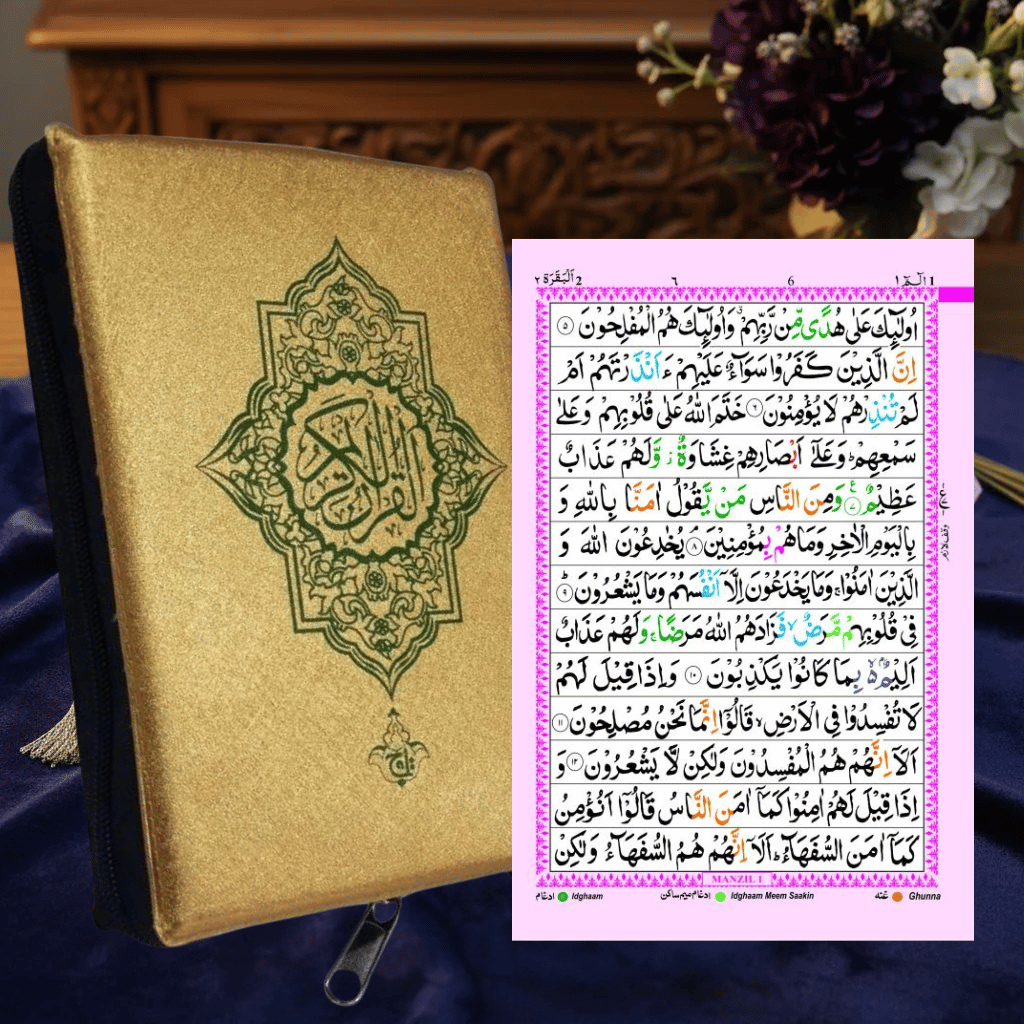 القرآن الكريم
2 اَلْبَقَرَة ٢ ٦ 6 الٓمّٓ ١ 1
اُولٰٓئِكَ عَلٰى هُدًى مِّنْ رَّبِّهِمْ ۙ وَاُولٰٓئِكَ هُمُ الْمُفْلِحُوْنَ ۝٥
اِنَّ الَّذِيْنَ كَفَرُوْا سَوَآءٌ عَلَيْهِمْ ءَاَنْذَرْتَهُمْ اَمْ
لَمْ تُنْذِرْهُمْ لَا يُؤْمِنُوْنَ ۝٦ خَتَمَ اللّٰهُ عَلٰى قُلُوْبِهِمْ وَعَلٰى
سَمْعِهِمْ ؕ وَعَلٰٓى اَبْصَارِهِمْ غِشَاوَةٌ ؗ وَّلَهُمْ عَذَابٌ
عَظِيْمٌ ۝٧ وَمِنَ النَّاسِ مَنْ يَّقُوْلُ اٰمَنَّا بِاللّٰهِ وَ
بِالْيَوْمِ الْاٰخِرِ وَمَا هُمْ بِمُؤْمِنِيْنَ ۝٨ يُخٰدِعُوْنَ اللّٰهَ وَ
الَّذِيْنَ اٰمَنُوْا ۚ وَمَا يَخْدَعُوْنَ اِلَّاۤ اَنْفُسَهُمْ وَمَا يَشْعُرُوْنَ ؕ ۝٩
فِيْ قُلُوْبِهِمْ مَّرَضٌ ۙ فَزَادَهُمُ اللّٰهُ مَرَضًا ۚ وَلَهُمْ عَذَابٌ
اَلِيْمٌۢ ۙ۬ بِمَا كَانُوْا يَكْذِبُوْنَ ۝١٠ وَاِذَا قِيْلَ لَهُمْ
لَا تُفْسِدُوْا فِي الْاَرْضِ ۙ قَالُوْۤا اِنَّمَا نَحْنُ مُصْلِحُوْنَ ۝١١
اَلَاۤ اِنَّهُمْ هُمُ الْمُفْسِدُوْنَ وَلٰكِنْ لَّا يَشْعُرُوْنَ ۝١٢ وَ
اِذَا قِيْلَ لَهُمْ اٰمِنُوْا كَمَاۤ اٰمَنَ النَّاسُ قَالُوْۤا اَنُؤْمِنُ
كَمَاۤ اٰمَنَ السُّفَهَآءُ ؕ اَلَاۤ اِنَّهُمْ هُمُ السُّفَهَآءُ وَلٰكِنْ
وقف لازم
MANZIL 1
ادغام Idghaam ادغام میم ساکن Idghaam Meem Saakin غنّه Ghunna